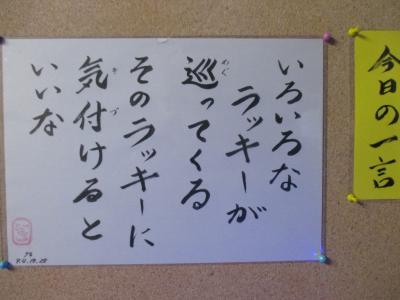 今日の一言
いろいろな
ラッキーが
巡ってくる
めぐ
そのラッキーに
気付けると
きづ
いいな